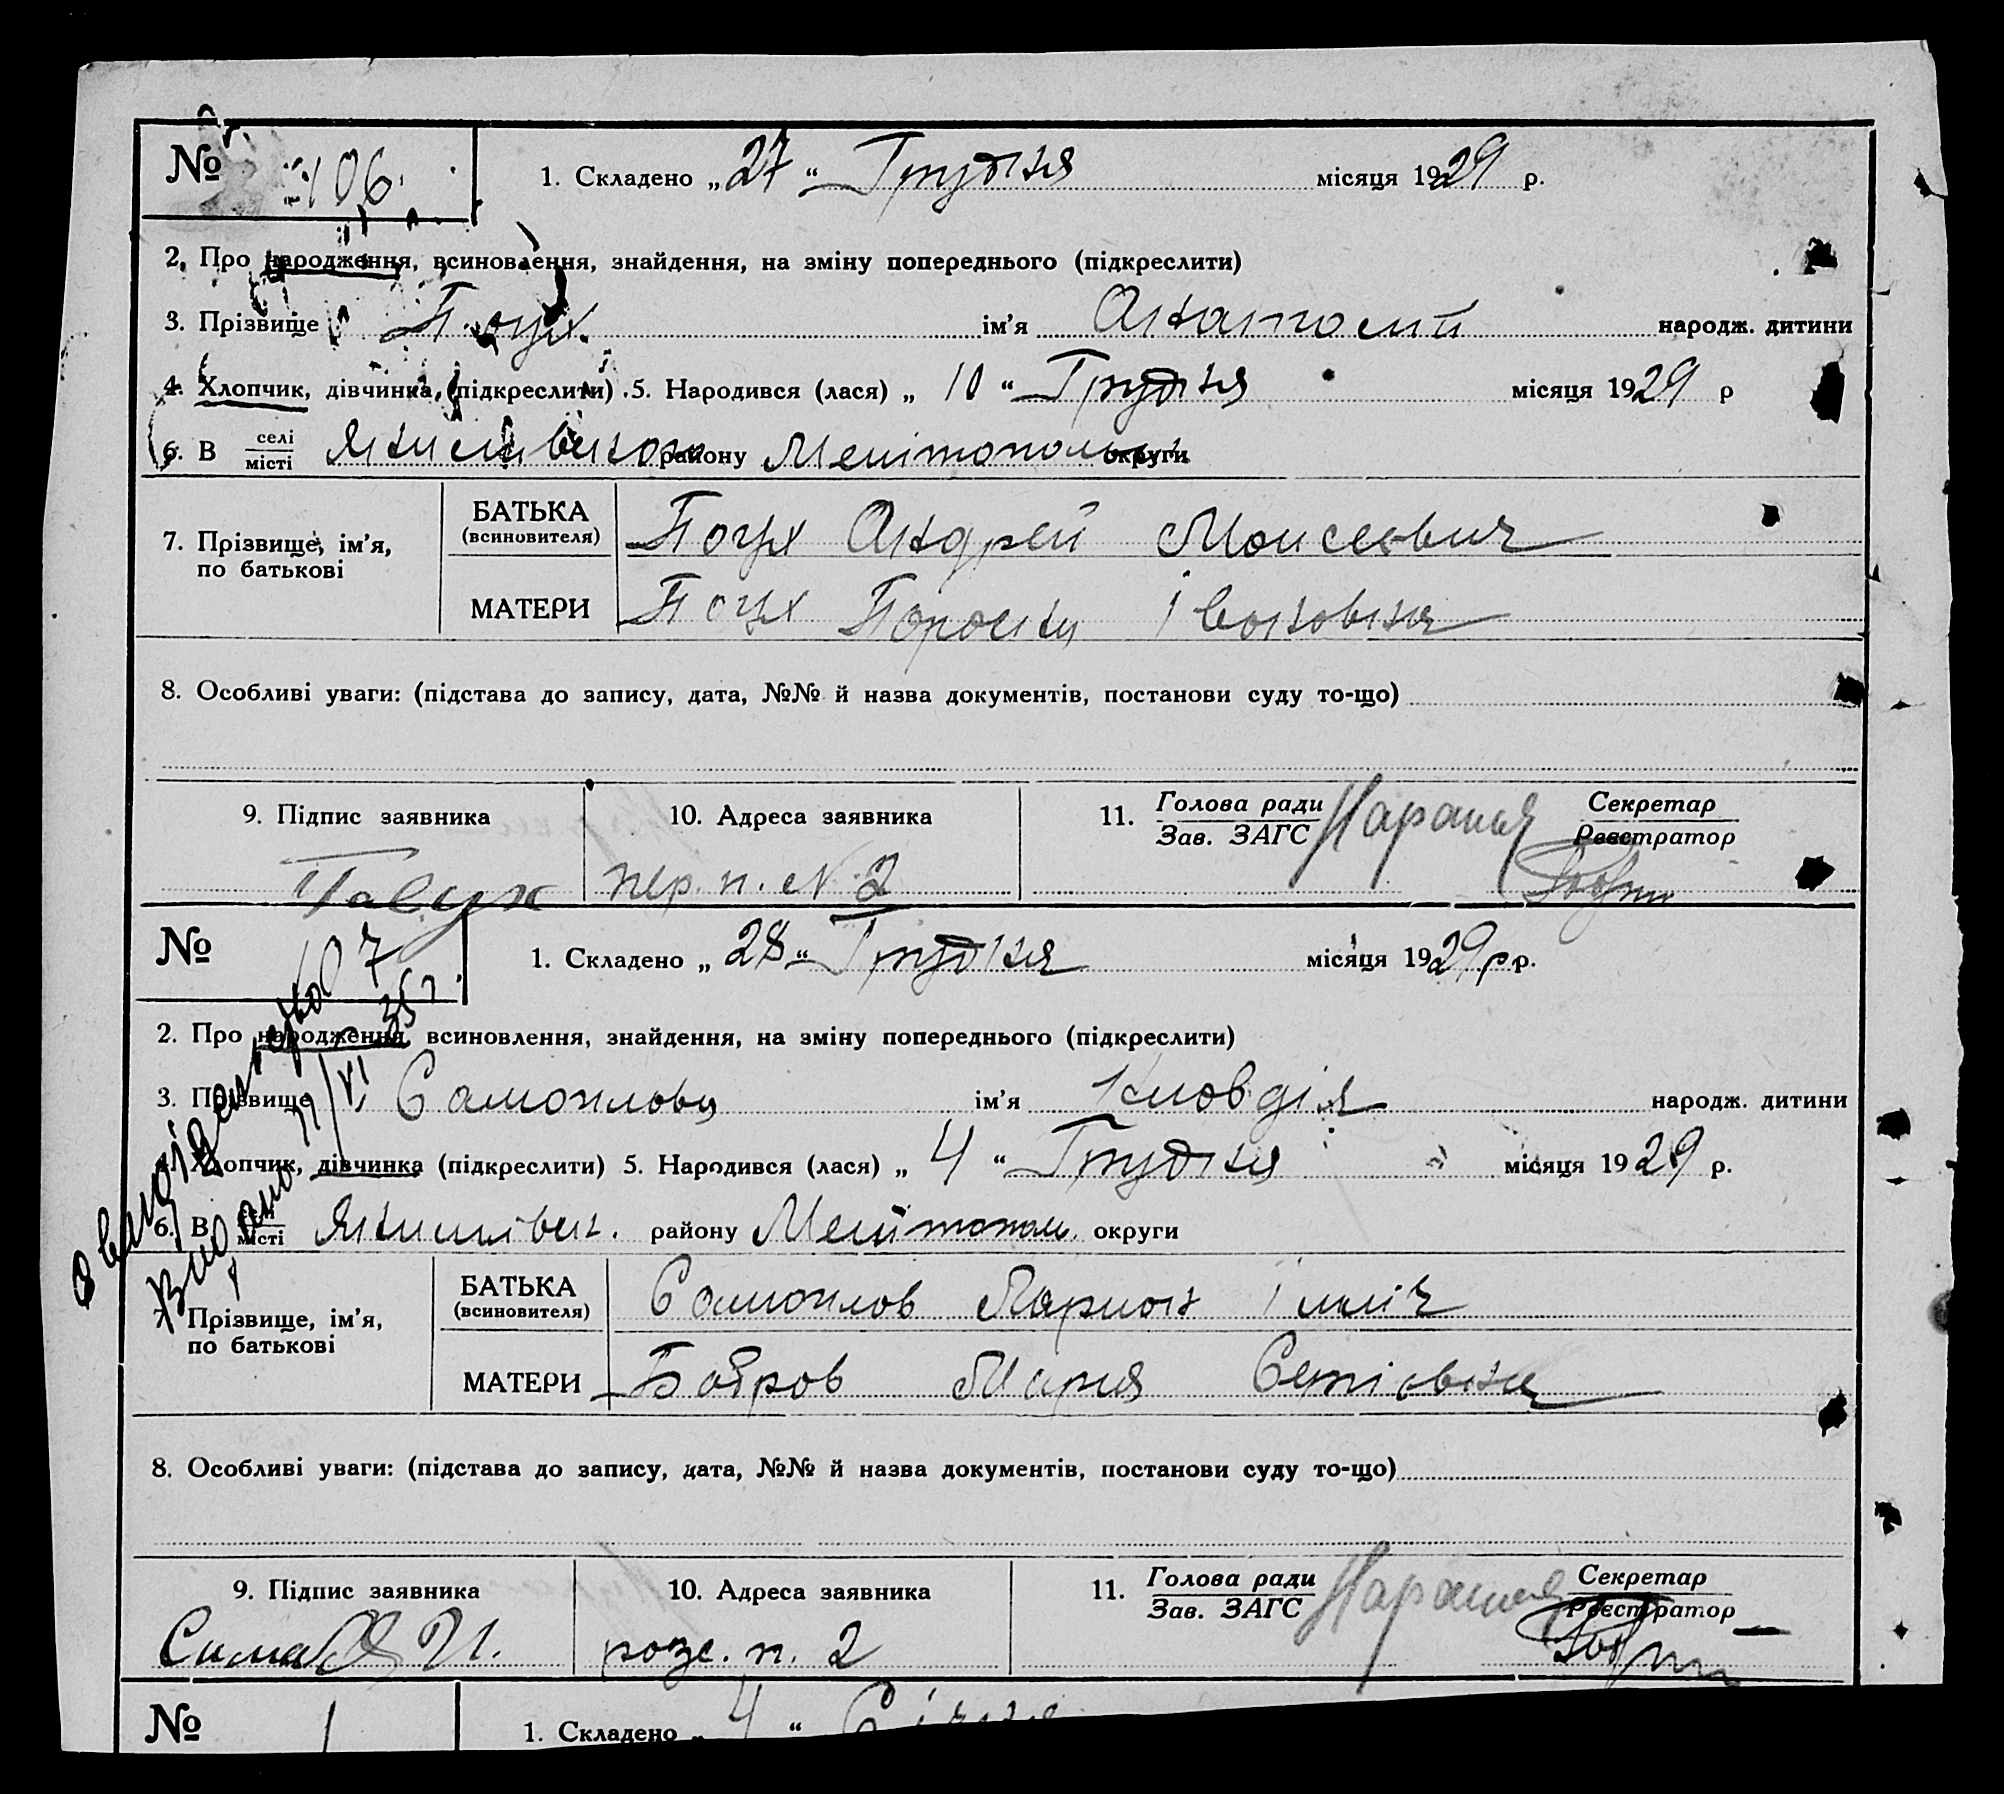 № 106
1. Складено „27“ Грудня місяця 1929 р.
2. Про народження, всиновлення, знайдення, на зміну попереднього (підкреслити)
3. Прізвище Поцух ім'я Анатолій народж. дитини
4. Хлопчик, дівчинка, (підкреслити) 5. Народився (лася) „10“ Грудня місяця 1929 р
6. В селі/місті району Мелітополь округи
7. Прізвище, ім'я, по батькові
БАТЬКА (всиновителя) Андрей Моисеевич
МАТЕРИ Івановна
8. Особливі уваги: (підстава до запису, дата, №№ й назва документів, постанови суду то-що)
9. Підпис заявника
10. Адреса заявника
11. Голова ради / Зав. ЗАГС
Секретар / Реєстратор
пер. п. N 2
№ 107
1. Складено „28“ Грудня місяця 1929 р р.
2. Про народження, всиновлення, знайдення, на зміну попереднього (підкреслити)
3. Прізвище Самойлова ім'я Клавдія народж. дитини
4. Хлопчик, дівчинка (підкреслити) 5. Народився (лася) „4“ Грудня місяця 1929 р.
6. В селі/місті району Мелітопол. округи
7. Прізвище, ім'я, по батькові
БАТЬКА (всиновителя) Самойлов Ларион Ілліч
МАТЕРИ Мария
8. Особливі уваги: (підстава до запису, дата, №№ й назва документів, постанови суду то-що)
9. Підпис заявника
10. Адреса заявника
11. Голова ради / Зав. ЗАГС
Секретар / Реєстратор
розс. п. 2
№ 1
1. Складено „4“ Січня